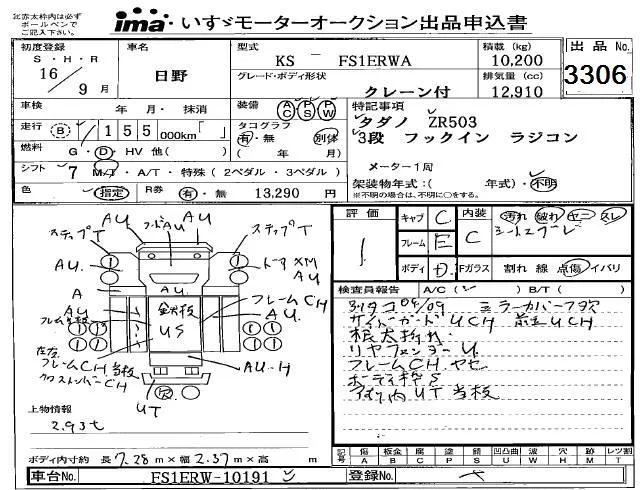 ima・いすゞモーターオークション出品申込書
初度登録
S・H・R
16 9月
車名
日野
型式
KS － FS1ERWA
グレード・ボディ形状
クレーン付
積載 (kg)
10,200
排気量 (cc)
12,910
出品 No.
3306
車検 年 月・ 抹消
走行 B 1 1 5 5 000km「 」
燃料 G・D・HV 他( )
シフト 7 M/T・A/T・特殊 ( 2ペダル・3ペダル )
色 指定 R券 有・無 13,290 円
装備 AC PS PW
タコグラフ
有・無 別体
( 年 月)
特記事項
タダノ ZR503
3段 フックイン ラジコン
メーター1周
架装物年式:( 年式)・不明
※不明の場合は、不明に○をする。
ステップT AU フードAU AU ステップT
AU. AU.
A A.
AU フレームCH
AU.
鉄板
US
左右
フレームCH 当板 AU-H
クロスメンバーCH
UT
上物情報
2.93t
ボディ内寸約 長 7.28 m × 幅 2.37 m × 高 m
車台No. FS1ERW-10191
評価
1
キャブ C
フレーム E
ボディ D.
内装 C
汚れ 破れ ヤニ スレ
シートコゲ
Fガラス 割れ 線 点傷 イバリ
検査員報告 A/C( ) B/T( )
04/09 ミラーカバーフタ欠
サイドガードUCH 前左UCH
根太折れ
リヤフェンダーU.
フレームCH ヤセ
ボディ枠S
アオリ内UT当板
記号 傷 板金 腐 塗 錆 凹 凸凹曲 波 穴 メ跡 要交換 レツ割
A B C P S U W H M X T
登録No.